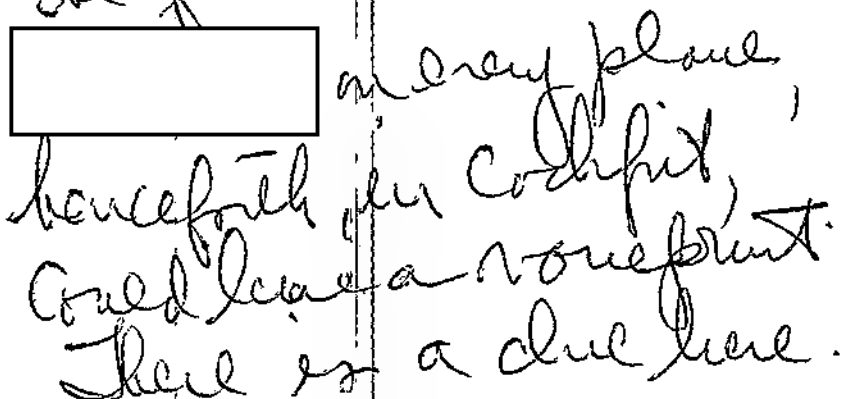 on every plane,
henceforth in Cockpit,
Could have a voiceprint.
There is a clue here.